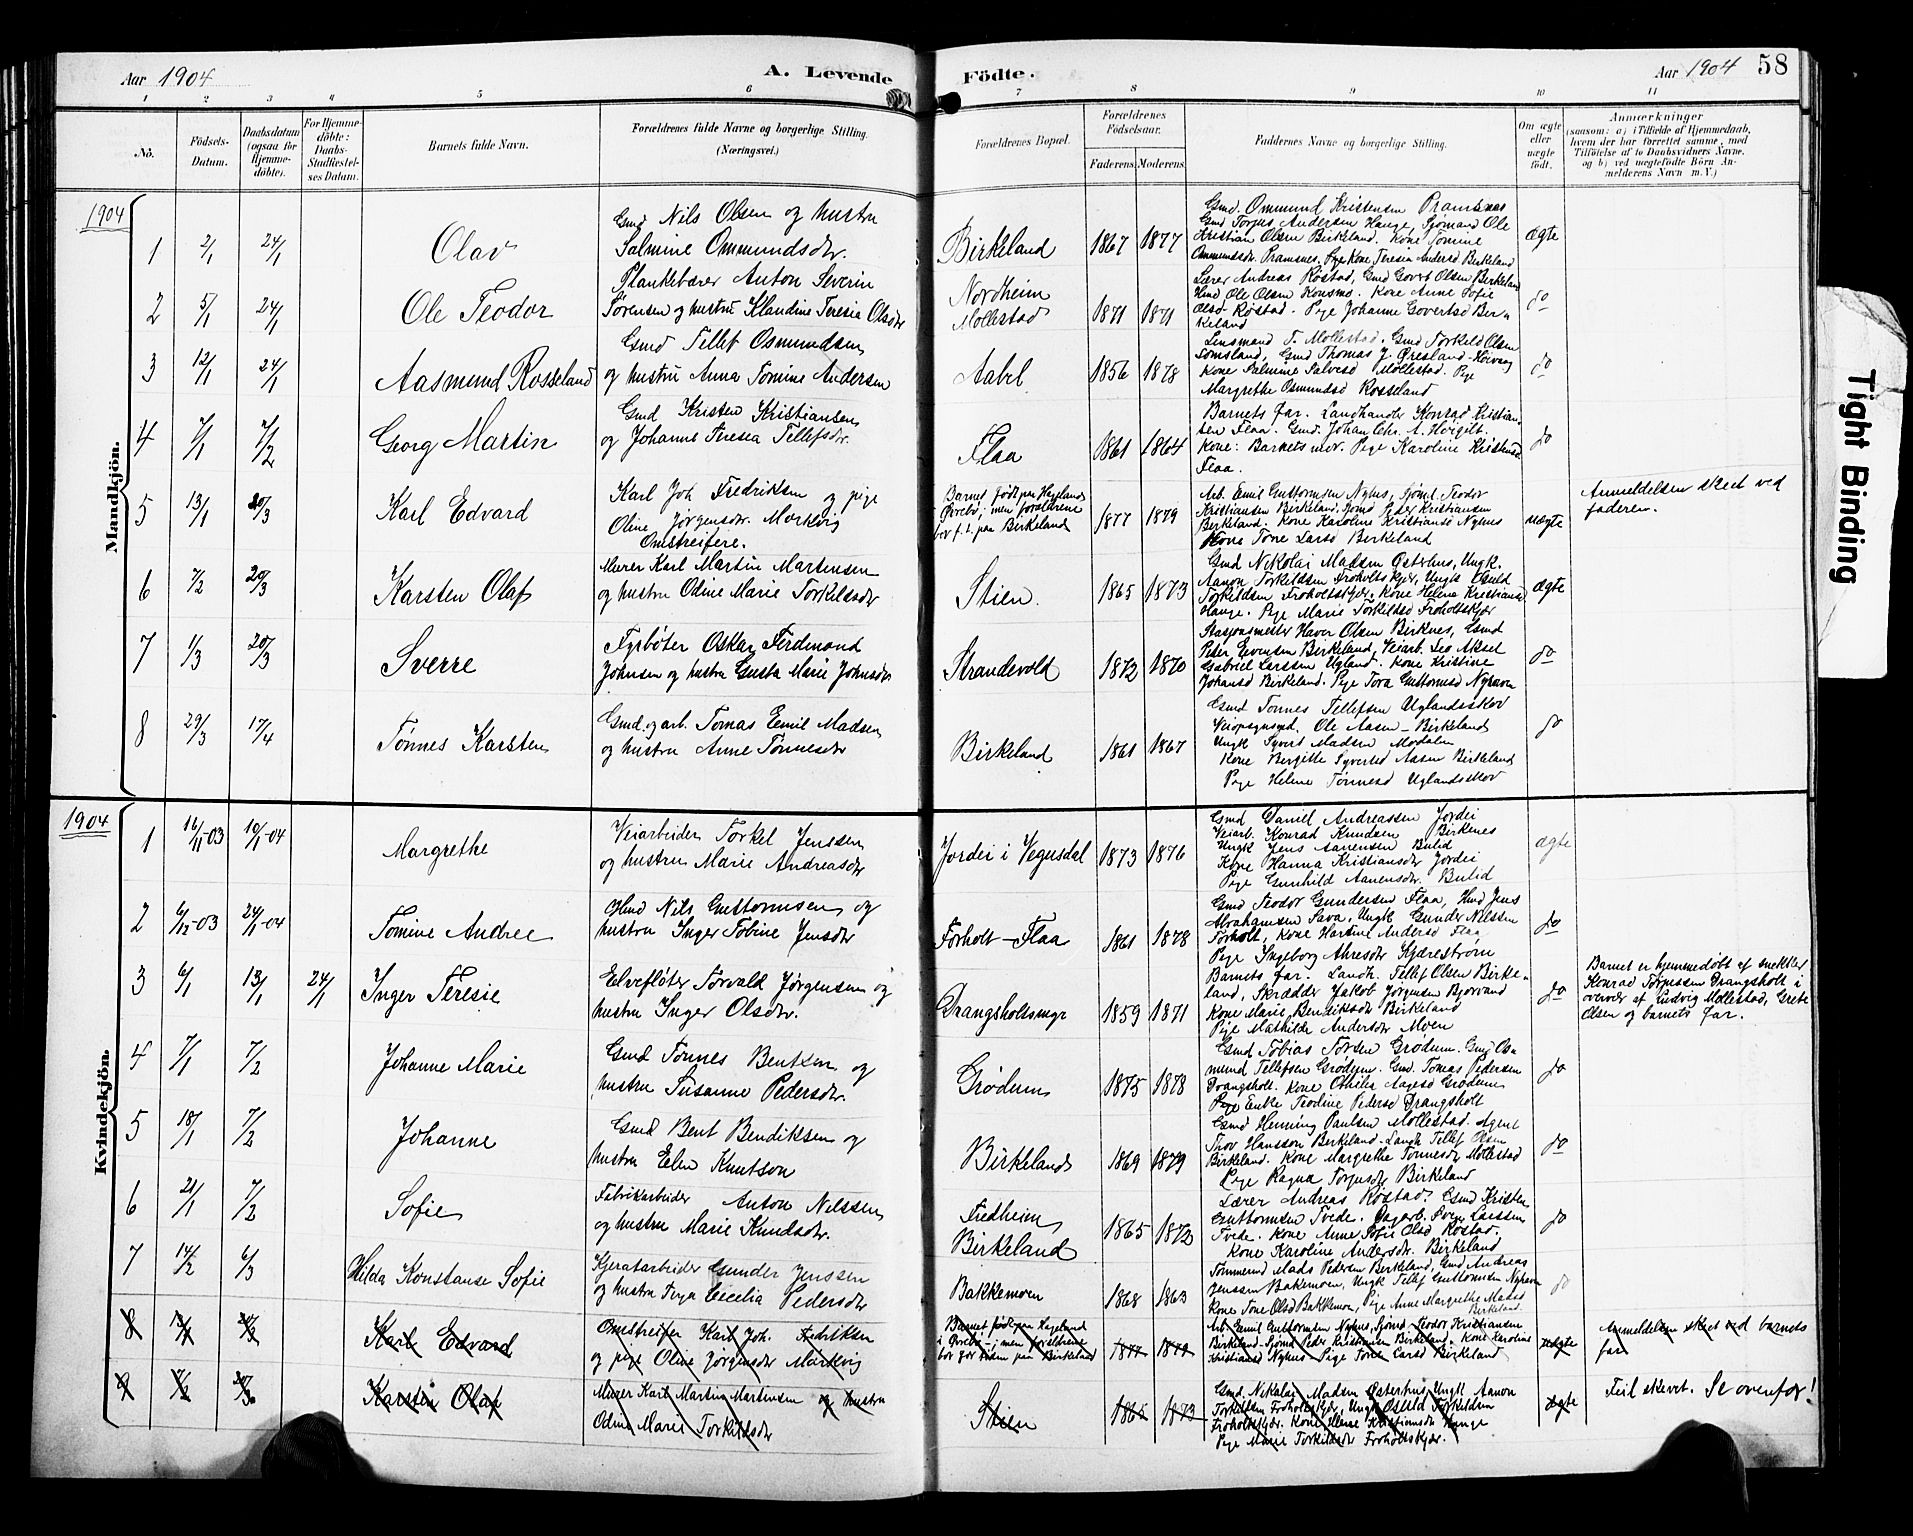 Aar 1904
A. Levende Födte.
Aar 1904 58
1 2 3 4 5 6 7 8 9 10 11
No.
Födsels-
Datum.
Daabsdatum
(ogsaa for
Hjemme-
döbte).
For Hjemme-
döbte:
Daabs-
Stadfæstel-
ses Datum.
Barnets fulde Navn.
Forældrenes fulde Navne og borgerlige Stilling.
(Næringsvei.)
Forældrenes Bopæl.
Forældrenes
Födselsaar.
Faderens. Moderens.
Faddernes Navne og borgerlige Stilling.
Om ægte
eller
uægte
födt.
Anmærkninger
(saasom: a) i Tilfælde af Hjemmedaab,
hvem der har forrettet samme, med
Tilföielse af to Daabsvidners Navne,
og b) ved uægtefödte Börn An-
melderens Navn m. V.)
Mandkjön.
1904
1 2/1 24/1 Olav
Gmd Nils Olsen og hustru
Salmine Ommundsdtr.
Birkeland 1867 1877
Gmd. Ommund Kristensen Pramsnes
Gmd Torjus Andersen Hauge, Sjømand Ole
Kristian Olsen Birkeland. Kone Tomine
Ommundsdtr. Pramsnes. Kone Teresia Andersd Birkeland
ægte
2 5/1 24/1 Ole Teodor
Plankebærer Anton Severin
Sørensen og hustru Klandine Teresie Olsdtr
Nordheim
Mollestad 1871 1871
Lærer Andreas Røstad, Gmd Govert Olsen Birkeland
Hmd Ole Olsen Konsmo. Kone Anne Sofie
Olsd Røstad. Pige Johanne Govertsd Bir-
keland
do
3 12/1 24/1 Aasmund Rosseland
Gmd Tellef Osmundsen
og hustru Anna Tomine Andersen
Aabel 1856 1878
Lensmand T. Mollestad. Gmd Torkeld Olsen
Somsland, Gmd Thomas J. Øresland - Høivaag
Kone Salmine Salvesd Mollestad. Pige
Margrethe Osmundsd Rosseland
do
4 7/1 7/2 Georg Martin
Gmd Kristen Kristiansen
og Johanne Teresia Tellefsdtr.
Flaa 1861 1864
Barnets far. Landhandler Konrad Kristian-
sen Flaa. Gmd. Johan Chr. A. Høigilt.
Kone: Barnets mor. Pige Karoline Kristensd
Flaa.
do
5 13/1 20/3 Karl Edvard
Karl Joh Fredriksen og pige
Oline Jørgensdtr. Markvig
Omstreifere.
Barnet født paa Hageland
i Øvrebø, men forældrene
bor f. t. paa Birkeland
1877 1879
Arb. Emil Guttormsen Nyhus, Sjømd. Teodor
Kristiansen Birkeland. Sjømd Peder Kristiansen
Birkeland. Kone Karoline Kristiansd Nyhus
Kone Tone Larsd Birkeland
uægte
Anmeldelsen skeet ved
faderen.
6 7/2 20/3 Karsten Olaf
Murer Karl Martin Martensen
og hustru Odine Marie Torkelsdtr
Stien. 1865 1873
Gmd Nikolai Madsen Østerhus, Ungk.
Aanon Torkildsen Froholtskjær, Ungk Osuld
Torkildsen Froholtskjær. Kone Helene Kristiansd
Hauge. Pige Marie Torkildsd Froholtskjær
ægte
7 1/3 20/3 Sverre
Fyrbøter Oskar Ferdinand
Johnsen og hustru Gusta Marie Johnsdtr
Strandevold 1872 1870
Stasjonsmester Haver Olsen Birknes, Gmd
Peter Evensen Birkeland, Veiarb. Leo Aksel
Gabriel Larssen Ugland. Kone Kristine
Johansd Birkeland. Pige Tora Guttormsd Nyhavn
do
8 29/3 17/4 Tønnes Karsten
Gmd. og arb. Tomas Emil Madsen
og hustru Anne Tønnesdtr
Birkeland 1861 1867
Gmd Tønnes Tellefsen Uglandsskov
Veiopsynsmd. Ole Aasen - Birkeland
Ungk Syvert Madsen Modalen
Kone Bergitte Syvertsd Aasen Birkeland
Pige Helene Tønnesd Uglandsskov
do
Kvindekjön.
1904
1 16/11-03 10/1-04 Margrethe
Veiarbeider Torkel Jenssen
og hustru Marie Andreasdtr
Jordei i Vegusdal 1873 1876
Gmd Daniel Andreassen Jordei
Veiarb. Konrad Knudsen Birkenes
Ungk Jens Aanensen Bulid
Kone Hanna Kristiansdtr Jordei
Pige Gunhild Aanensdtr. Bulid
ægte
2 6/12-03 24/1-04 Tomine Andree
Hmd Nils Guttormsen og
hustru Inger Tobine Jensdtr
Forholt - Flaa 1861 1878
Gmd Teodor Gundersen Flaa, Hmd Jens
Abrahamsen Sava, Ungk Gunder Nilssen
Torholt, Kone Hartine Andersd Flaa
Pige Ingeborg Ahresdtr Kjærestrøm
do
3 6/1 13/1 24/1 Inger Teresie
Elvefløter Torvald Jørgensen og
hustru Inger Olsdtr.
Drangsholtsmyr 1859 1871
Barnets far. Landh. Tellef Olsen Birke-
land, Skrædder Jakob Jørgensen Bjorvand
Kone Marie Bendiksdtr Birkeland
Pige Mathilde Andersdtr Moen
do
Barnet er hjemmedøbt af snekker
Konrad Torjussen Drangsholt i
overvær af Ludvig Mollestad, Grete
Olsen og barnets far.
4 7/1 7/2 Johanne Marie
Gmd Tønnes Bentsen og
hustru Susanne Pedersdtr.
Grødum 1875 1878
Gmd Tobias Torsen Grødum. Gmd Os-
mund Tellefsen Grødum. Gmd. Tomas Pedersen
Drangsholt. Kone Othilie Aagesd Grødum
Pige Enke Teodine Pedersd Drangsholt
do
5 18/1 7/2 Johanne
Gmd Bent Bendiksen og
hustru Elen Knutson
Birkeland 1869 1879
Gmd Henning Paulsen Mollestad. Agent
Thor Hansson Birkeland. Landh Tellef Olsen
Birkeland. Kone Margrethe Tønnesdtr Mollestad
Pige Ragna Torjusdtr Birkeland
do
6 21/1 7/2 Sofie
Fabrikarbeider Anton Nilssen
og hustru Marie Knudsdtr.
Fredheim
Birkeland 1865 1872
Lærer Andreas Røstad. Gmd Kristen
Guttormsen Tvede. Dagarb. Sven Larssen
Tvede. Kone Anne Sofie Olsd Røstad.
Kone Karoline Andersdtr. Birkeland
do
7 14/2 6/3 Hilda Konstanse Sofie
Kjeratarbeider Gunder Jenssen
og hustru Cecelia Pedersdtr
Bakkemoen 1868 1863
Tommermd Mads Pedersen Birkeland, Gmd Andreas
Jenssen Bakemoen, Ungk Tellef Guttormsen Nyhavn
Kone Tone Olsd Bakkemoen, Pige Anne Margrethe Madsd
Birkeland.
do
8 13/1 20/3 Karl Edvard
Omstreifer Karl Joh. Fredriksen
og pige Oline Jørgensdtr Markvig
Barnet født paa Hageland
i Øvrebø, men forældrene
bor for tiden paa Birkeland
1877 1879
Arb. Emil Guttormsen Nyhus, Sjømd. Teodor Kristiansen
Birkeland. Sjømd Peder Kristiansen Birkeland. Kone Karoline
Kristiansd Nyhus. Pige Tone Larsd Birkeland
uægte
Anmeldelsen skeet ved barnets
far
9 7/2 20/3 Karsten Olaf
Murer Karl Martin Martensen og hustru
Odine Marie Torkildsdtr
Stien 1865 1873
Gmd. Nikolay Madsen Østerhus, Ungk Aanon
Torkildsen Froholtskjær, Ungk Osuld Torkildsen
Froholtskjær. Kone Helene Kristiansdtr Hauge
Pige Marie Torkildsdtr Froholtskjær.
ægte
Feil skrevet. Se ovenfor!
Tight Binding